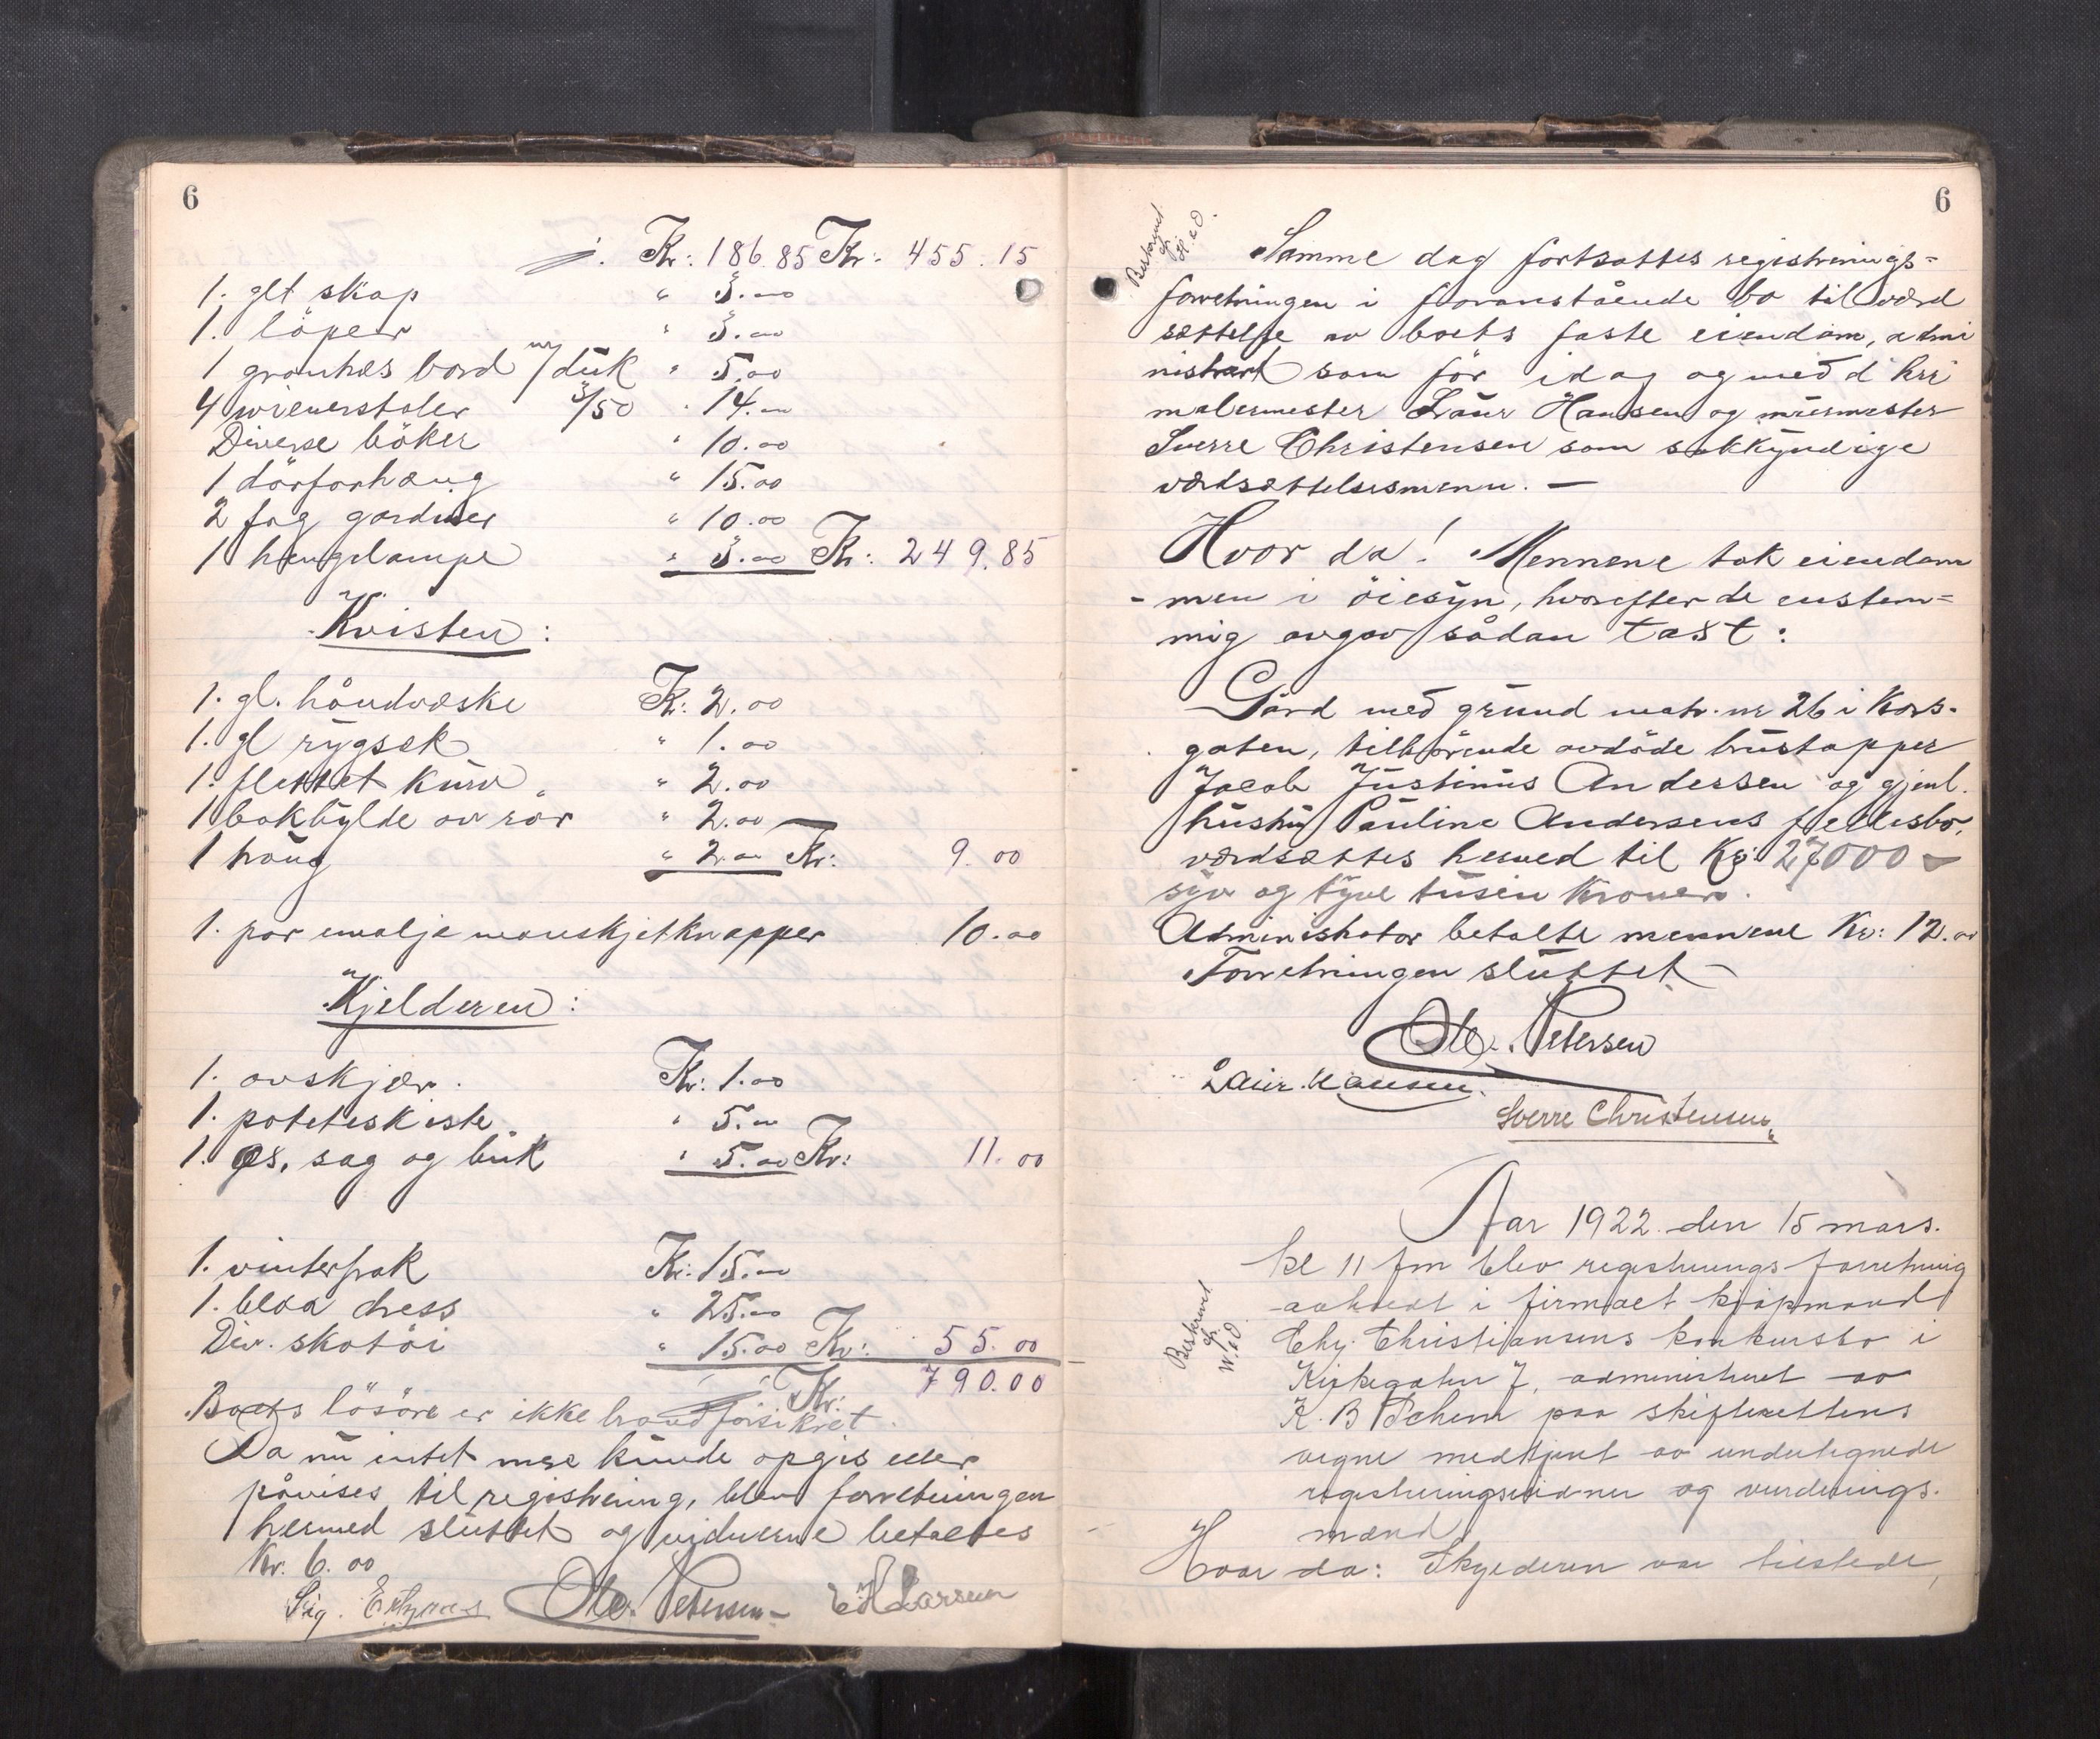 6
Kr: 186.85 Kr. 455.15
1. glt skap " 3.00
1. löper " 3.00
1 granhæs bord m/duk " 5.00
4 wienerstoler 3/50 " 14.00
Diverse böker " 10.00
1 dörforhæng " 15.00
2 fag gardiner " 10.00
1 hengelampe " 3.00 Kr: 249.85
Kvisten:
1. gl. håndvæske Kr: 2.00
1. gl rygsek " 1.00
1. flettet kurv " 2.00
1 bokhylde av rör " 2.00
1 haug " 2.00 Kr: 9.00
1. par emalje manskjetknapper 10.00
Kjelderen:
1. avskjær. Kr: 1.00
1. poteteskiste " 5.00
1. øs, sag og buk " 5.00 Kr: 11.00
1. vinterfrak Kr: 15.00
1. blaa dress " 25.00
Div. skotöi " 15.00 Kr: 55.00
Kr: 790.00
Boets lösöre er ikke brandforsikret.
Da nu intet mere kunde opgis eller
påvises til registrering, blev forretningen
hermed sluttet og vidnerne betaltes
Kr. 6.00
Sig. Ole. Petersen E H Larsen
6
Beskrevet
H. & O.
Samme dag fortsattes registrerings-
forretningen i foranstående bo til værd
sættelse av boets faste eiendom, admi
nistrert som för idag og med d hrr
malermester Laur Hansen og murmester
Sverre Christensen som sakkyndige
værdsættelsesmenn. —
Hvor da! Mennene tok eiendom
- men i öiesyn, hvorefter de enstem-
mig avgav sådan takst:
Gård med grund matr. nr 26 i Kors-
gaten, tilhörende avdöde brustapper
Jacob Justinus Andersen og gjenl.
hustru Pauline Andersens fellesbo,
værdsættes herved til Kr: 27000 -
syv og tyve tusen kroner.
Administrator betalte mennene Kr: 12.00
Forretningen sluttet -
Ole. Petersen
Laur. Hansen.
Sverre Christensen
Aar 1922 den 15 mars.
kl 11 fm blev registrerings forretning
avholdt i firmaet kjøpmand
Chr. Christiansens konkursbo i
Kirkegaten 7, administrert av
K. B Schem paa skifterettens
vegne medtjent av undertegnede
registreringsvidner og vurderings-
mænd
Beskrevet
Hvor da: Skyldneren var tilstede,